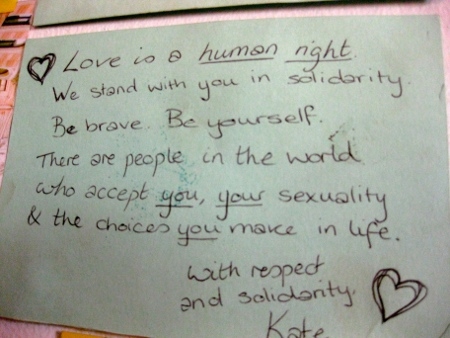 Love is a human right.
We stand with you in solidarity.
Be brave. Be yourself.
There are people in the world
who accept you, your sexuality
& the choices you make in life.
With respect
and solidarity.
Kate